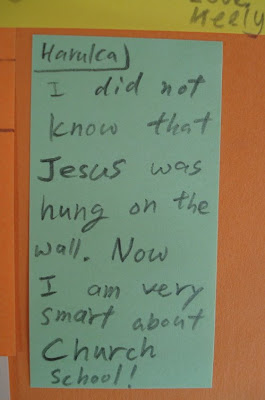 Neely
Haruka
I did not
know that
Jesus was
hung on the
wall. Now
I am very
smart about
Church
school!